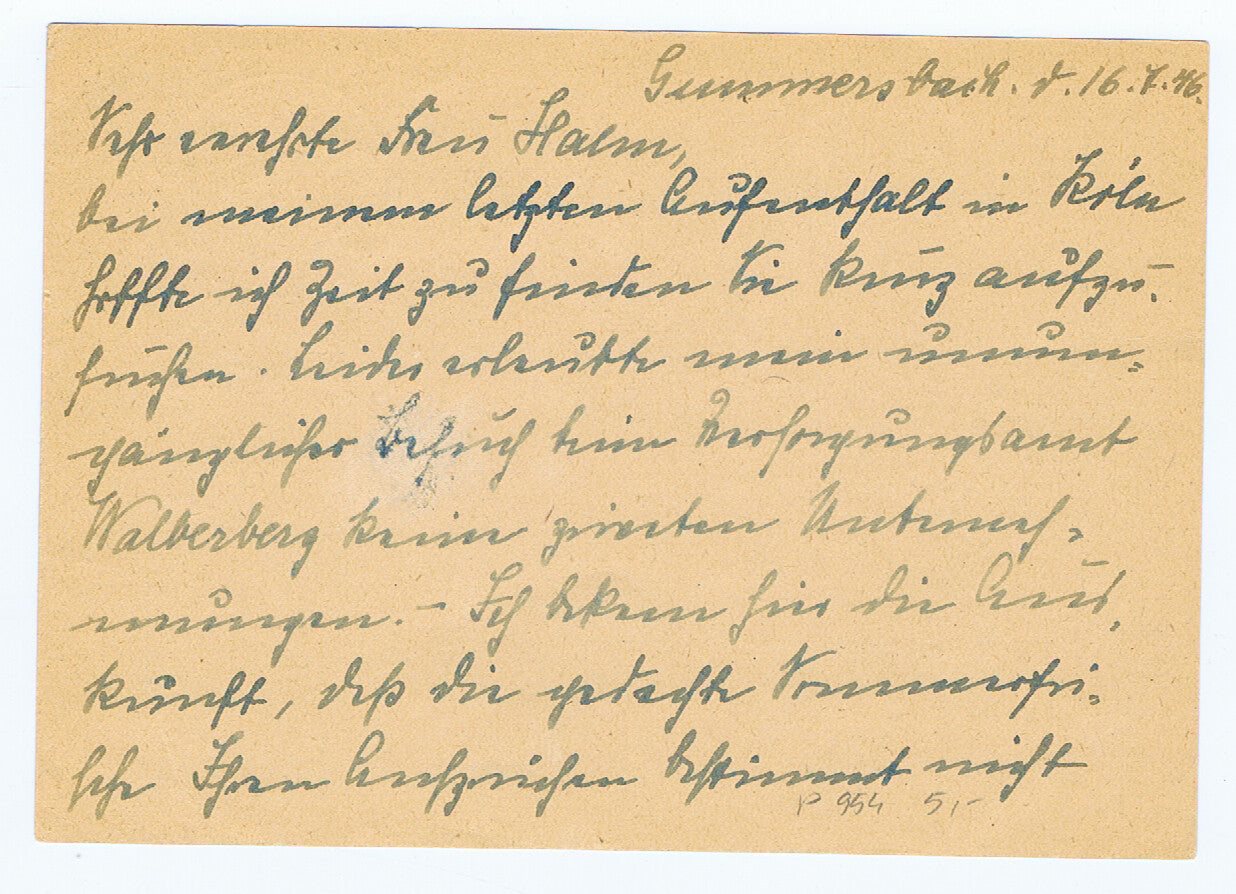 Gummersbach. d. 16.7.46.
Sehr verehrte Frau Halm,
bei meinem letzten Aufenthalt in Köln
hoffte ich Zeit zu finden Sie kurz aufzu-
suchen. Leider erlaubte mein unum-
gänglicher Besuch beim Versorgungsamt
Walberberg keine zweiten Unterneh-
mungen. - Ich bekam hier die Aus-
kunft, daß die gedachte Sommerfri-
sche Ihren Ansprüchen bestimmt nicht
P 954 5,-